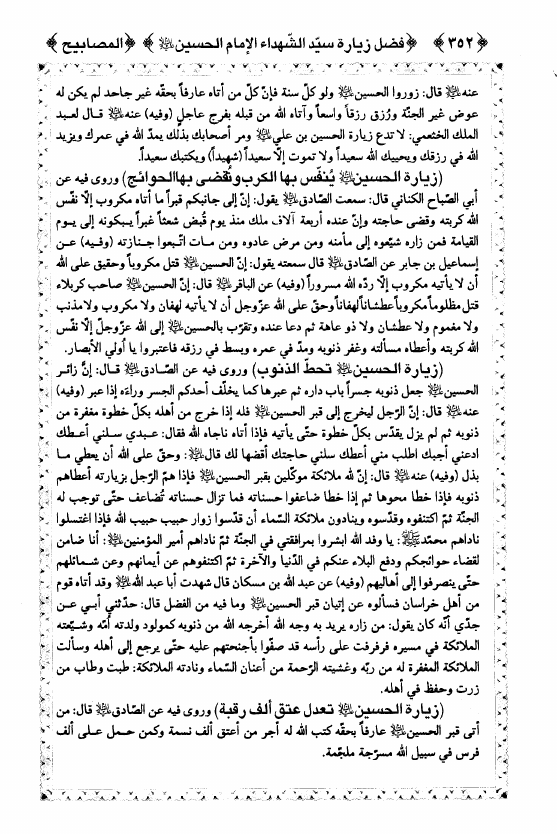 ﴿٣٥٢﴾ ﴿فضل زيارة سيّد الشّهداء الإمام الحسين ﷺ﴾ ﴿المصابيح﴾
عنه ﷺ قال: زوروا الحسين ﷺ ولو كلّ سنة فإنّ كلّ من أتاه عارفاً بحقّه غير جاحد لم يكن له
عوض غير الجنّة ورُزق رزقاً واسعاً وآتاه الله من قبله بفرج عاجلٍ (وفيه) عنه ﷺ قال لعبد
الملك الخثعمي: لا تدع زيارة الحسين بن علي ﷺ ومر أصحابك بذلك يمدّ الله في عمرك ويزيد
الله في رزقك ويحييك الله سعيداً ولا تموت إلّا سعيداً (شهيداً) ويكتبك سعيداً.
(زيارة الحسين ﷺ يُنفّس بها الكرب وتُقضى بها الحوائج) وروى فيه عن
أبي الصّباح الكناني قال: سمعت الصّادق ﷺ يقول: إنّ إلى جانبكم قبراً ما أتاه مكروب إلّا نفّس
الله كربته وقضى حاجته وإنّ عنده أربعة آلاف ملك منذ يوم قُبض شعثاً غبراً يبكونه إلى يوم
القيامة فمن زاره شيّعوه إلى مأمنه ومن مرض عادوه ومن مات اتّبعوا جنازته (وفيه) عن
إسماعيل بن جابر عن الصّادق ﷺ قال سمعته يقول: إنّ الحسين ﷺ قتل مكروباً وحقيق على الله
أن لا يأتيه مكروب إلّا ردّه الله مسروراً (وفيه) عن الباقر ﷺ قال: إنّ الحسين ﷺ صاحب كربلاء
قتل مظلوماً مكروباً عطشاناً لهفاناً وحقّ على الله عزّوجل أن لا يأتيه لهفان ولا مكروب ولا مذنب
ولا مغموم ولا عطشان ولا ذو عاهة ثم دعا عنده وتقرّب بالحسين ﷺ إلى الله عزّوجلّ إلّا نفّس
الله كربته وأعطاه مسألته وغفر ذنوبه ومدّ في عمره وبسط في رزقه فاعتبروا يا اُولي الأبصار.
(زيارة الحسين ﷺ تحطّ الذنوب) وروى فيه عن الصّادق ﷺ قال: إنّ زائر
الحسين ﷺ جعل ذنوبه جسراً باب داره ثم عبرها كما يخلّف أحدكم الجسر وراءه إذا عبر (وفيه)
عنه ﷺ قال: إنّ الرّجل ليخرج إلى قبر الحسين ﷺ فله إذا خرج من أهله بكلّ خطوة مغفرة من
ذنوبه ثم لم يزل يقدّس بكلّ خطوة حتّى يأتيه فإذا أتاه ناجاه الله فقال: عبدي سلني أعطك
ادعني أجبك اطلب مني أعطك سلني حاجتك أقضها لك قال ﷺ: وحقّ على الله أن يعطي ما
بذل (وفيه) عنه ﷺ قال: إنّ لله ملائكة موكّلين بقبر الحسين ﷺ فإذا همّ الرّجل بزيارته أعطاهم
ذنوبه فإذا خطا محوها ثم إذا خطا ضاعفوا حسناته فما تزال حسناته تُضاعف حتّى توجب له
الجنّة ثمّ اكتنفوه وقدّسوه وينادون ملائكة السّماء أن قدّسوا زوار حبيب حبيب الله فإذا اغتسلوا
ناداهم محمّد ﷺ: يا وفد الله ابشروا بمرافقتي في الجنّة ثمّ ناداهم أمير المؤمنين ﷺ: أنا ضامن
لقضاء حوائجكم ودفع البلاء عنكم في الدّنيا والآخرة ثمّ اكتنفوهم عن أيمانهم وعن شمائلهم
حتّى ينصرفوا إلى أهاليهم (وفيه) عن عبد الله بن مسكان قال شهدت أبا عبد الله ﷺ وقد أتاه قوم
من أهل خراسان فسألوه عن إتيان قبر الحسين ﷺ وما فيه من الفضل قال: حدّثني أبي عن
جدّي أنّه كان يقول: من زاره يريد به وجه الله أخرجه الله من ذنوبه كمولود ولدته أمّه وشيّعته
الملائكة في مسيره فرفرفت على رأسه قد صفّوا بأجنحتهم عليه حتّى يرجع إلى أهله وسألت
الملائكة المغفرة له من ربّه وغشيته الرّحمة من أعنان السّماء ونادته الملائكة: طبت وطاب من
زرت وحفظ في أهله.
(زيارة الحسين ﷺ تعدل عتق ألف رقبة) وروى فيه عن الصّادق ﷺ قال: من
أتى قبر الحسين ﷺ عارفاً بحقّه كتب الله له أجر من أعتق ألف نسمة وكمن حمل على ألف
فرس في سبيل الله مسرّجة ملجّمة.